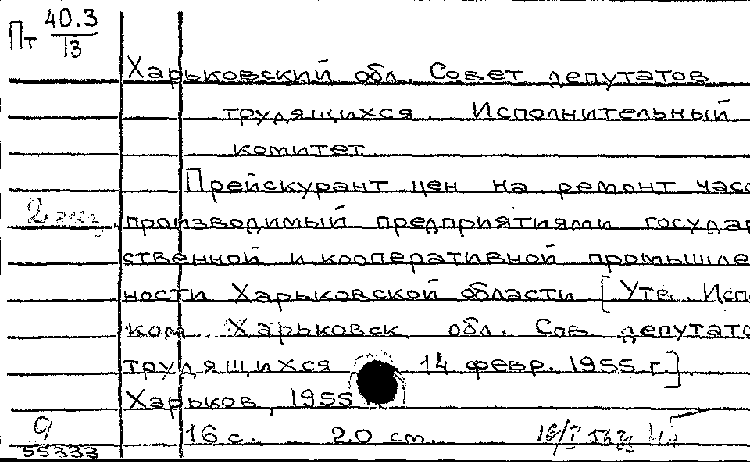 Пт 40.3
13
Харьковский обл. Совет депутатов
трудящихся. Исполнительный
комитет.
Прейскурант цен на ремонт часо
2 экз. производимый предприятиями государ
ственной и кооперативной промышлен
ности Харьковской области [Утв. Испол
ком Харьковск. обл. Сов. депутато
трудящихся 14 февр. 1955 г.]
Харьков, 1955
16 с. 20 см.
55333